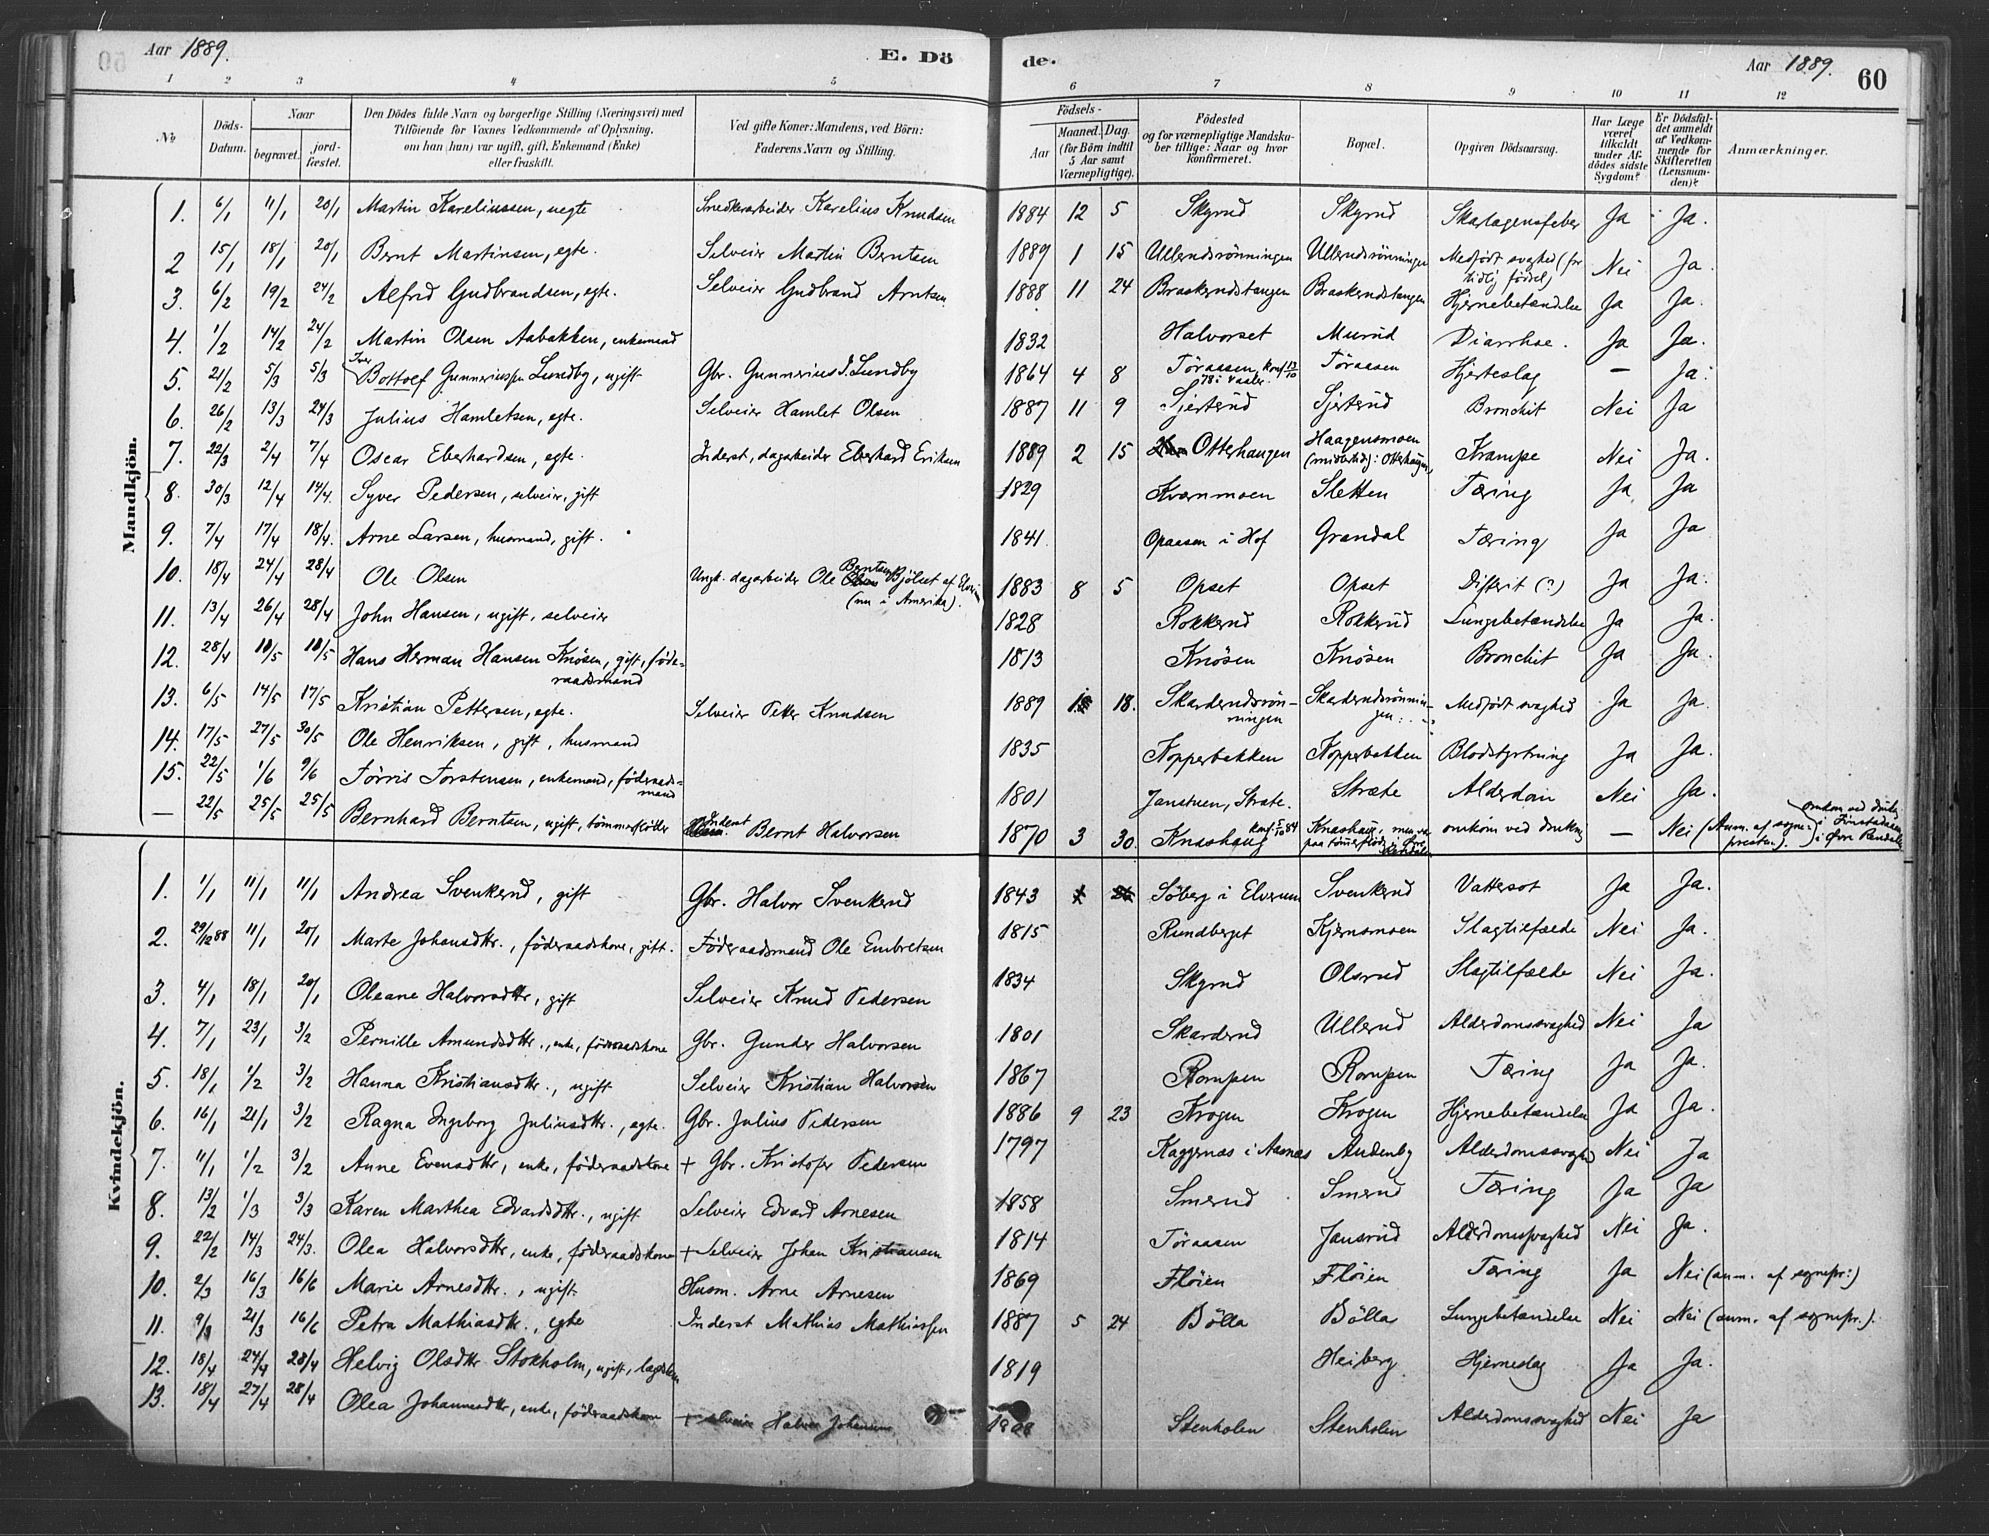 Aar 1889.
E. Dö
de.
Aar 1889.
60
1 2 3 4 5 6 7 8 9 10 11 12
No.
Döds-Datum.
Naar
begravet.
jord-fæstet.
Den Dödes fulde Navn og borgerlige Stilling (Næringsvei) med
Tilföiende for Voxnes Vedkommende af Oplysning,
om han (hun) var ugift, gift, Enkemand (Enke)
eller fraskilt.
Ved gifte Koner: Mandens, ved Börn:
Faderens Navn og Stilling.
Födsels-
Aar
Maaned. Dag.
(for Börn indtil
5 Aar samt
Værnepligtige).
Födested
og for værnepligtige Mandska-
ber tillige: Naar og hvor
konfirmeret.
Bopæl.
Opgiven Dödsaarsag.
Har Læge
været
tilkaldt
under Af-
dödes sidste
Sygdom?
Er Dödsfal-
det anmeldt
af Vedkom-
mende for
Skifteretten
(Lensman-
den)?
Anmærkninger.
Mandkjön.
1. 6/1 11/1 20/1 Martin Kareliussen, uegte Snedkerarbeider Karelius Knudsen 1884 12 5 Skyrud Skyrud Skarlagensfeber Ja Ja.
2 15/1 18/1 20/1 Bernt Martinsen, egte. Selveier Martin Berntsen 1889 1 15 Ullerudsrönningen Ullerudsrönningen Medfödt svaghed (for tidlig födsel) Nei Ja.
3. 6/2 19/2 24/2 Alfred Gudbrandsen, egte. Selveier Gudbrand Arntsen 1888 11 24 Braskerudstangen Braskerudstangen Hjernebetændelse Ja Ja.
4. 1/2 14/2 24/2 Martin Olsen Aabakken, enkemand 1832 Halvorset Murud Diarrhoe. Ja Ja.
5. 21/2 5/3 5/3 Iver Bottolf Gunneriussen Lundby, ugift Gbr. Gunnerius I. Lundby 1864 4 8 Töraasen, konf 13/10 78 i Vaaler. Töraasen Hjerteslag — Ja.
6. 26/2 13/3 24/3 Julius Hamletsen, egte. Selveier Hamlet Olsen 1887 11 9 Sjerterud Sjerterud Bronchit Nei Ja
7. 22/3 2/4 7/4 Oscar Eberhardsen, egte. Inderst, dagarbeider Eberhard Eriksen 1889 2 15 Otterhaugen Haagensmoen (midlertid.: Otterhaugen) Krampe Nei Ja.
8. 30/3 12/4 14/4. Syver Pedersen, selveier, gift 1829 Kvernmoen Sletten Tæring Ja. Ja
9. 7/4 17/4 18/4. Arne Larsen, husmand, gift. 1841 Opaasen i Hof Grandal Tæring Ja Ja
10. 18/4 24/4 28/4 Ole Olsen Ungk. dagarbeider Ole Berntsen Bjölset af Elverum (nu i Amerika). 1883 8 5 Opset Opset Difterit (?) Ja Ja.
11. 13/4 26/4 28/4 John Hansen, ugift, selveier 1828 Rokkerud Rokkerud Lungebetændelse Ja Ja.
12. 28/4 10/5 10/5 Hans Herman Hansen Knösen, gift, föde-raadsmand 1813 Knösen Knösen Bronchit Ja Ja.
13. 6/5 14/5 17/5 Kristian Pettersen, egte. Selveier Petter Knudsen 1889 18. Skarderudsrön-ningen Skarderudsrönnin-gen Medfödt svaghed Ja Ja.
14. 17/5 27/5 30/5 Ole Henriksen, gift, husmand 1835 Kopperbakken Kopperbakken Blodstyrtning Ja Ja.
15. 22/5 1/6 9/6 Törris Torstensen, enkemand, föderaads-mand 1801 Janstuen, Stræte. Stræte Alderdom Nei Ja.
— 22/5 25/5 25/5 Bernhard Berntsen, ugift, tömmerflöder Inderst Bernt Halvorsen 1870 3 30. Knashaug konf. 5/10 84 Knashaug, men paa tömmerflöd. i Rendalen omkom ved drukn. — Nei (Anm. af sogne-presten). omkom ved drukn. i Finstadaaen i Övre Rendalen
Kvindekjön.
1. 1/1 11/1 11/1 Andrea Svenkerud, gift Gbr. Halvor Svenkerud 1843 Söberg i Elverum Svenkerud Vattersot Ja Ja.
2. 29/12 88 11/1 20/1 Marte Johansdtr., föderaadskone, gift. Föderaadsmand Ole Embretsen 1815 Rundberget Kjernsmoen Slagtilfælde Nei Ja.
3. 4/1 18/1 20/1 Oleane Halvorsdtr, gift Selveier Knud Pedersen 1834 Skyrud Olsrud Slagtilfælde Nei Ja.
4. 7/1 23/1 3/2 Pernille Amundsdtr., enke, föderaadskone Gbr. Gunder Halvorsen 1801 Skarderud Ullerud Alderdomssvaghed Nei Ja
5. 18/1 1/2 3/2 Hanna Kristiansdtr., ugift Selveier Kristian Halvorsen 1867 Rompen Rompen Tæring Ja Ja.
6. 16/1 21/1 3/2 Ragna Ingeborg Juliusdtr., egte. Gbr. Julius Pedersen 1886 9 23 Krogen Krogen Hjernebetændelse Ja Ja.
7. 11/1 1/2 3/2 Anne Evensdtr, enke, föderaadskone + Gbr. Kristofer Pedersen 1797 Kaggernæs i Aasnes Audenby Alderdomssvaghed Nei Ja
8. 13/2 1/3 3/3 Karen Marthea Edvardsdtr., ugift Selveier Edvard Arnesen 1858 Smerud Smerud Tæring Ja Ja
9. 22/2 14/3 24/3. Olea Halvorsdtr, enke, föderaadskone + Selveier Johan Kristiansen 1814 Töraasen Jansrud Alderdomssvaghed Nei Ja.
10. 2/3 16/3 16/6 Marie Arnesdtr., ugift Husm. Arne Arnesen 1869 Flöien Flöien Tæring Ja Nei (anm. af sognepr.)
11. 9/3 21/3 16/6 Petra Mathiasdtr., egte Inderst Mathias Mathiassen 1887 5 24 Bölla Bölla Lungebetændelse Nei Nei (anm. af sognepr.).
12. 18/4 24/4 28/4 Helvig Olsdtr Stokholm, ugift, lægdslem 1819 Heiberg Hjerneslag Ja Ja.
13. 18/4 27/4 28/4 Olea Johannesdtr, enke, föderaadskone + selveier Halvor Johannesen Stenholen Stenholen Alderdomssvaghed Nei Ja